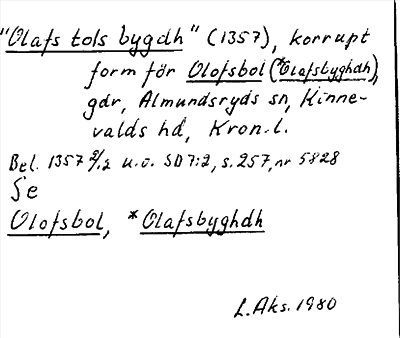 "Olafs tols bygdh" (1357), korrupt
form för Olofsbol (*Olafsbyghdh),
gdr, Almundsryds sn, Kinne-
valds hd, Kron.l.
Bel. 1357 2/2 u.o. SD7:2, s.257, nr 5828
Se
Olofsbol, *Olafsbyghdh
L.Aks. 1980